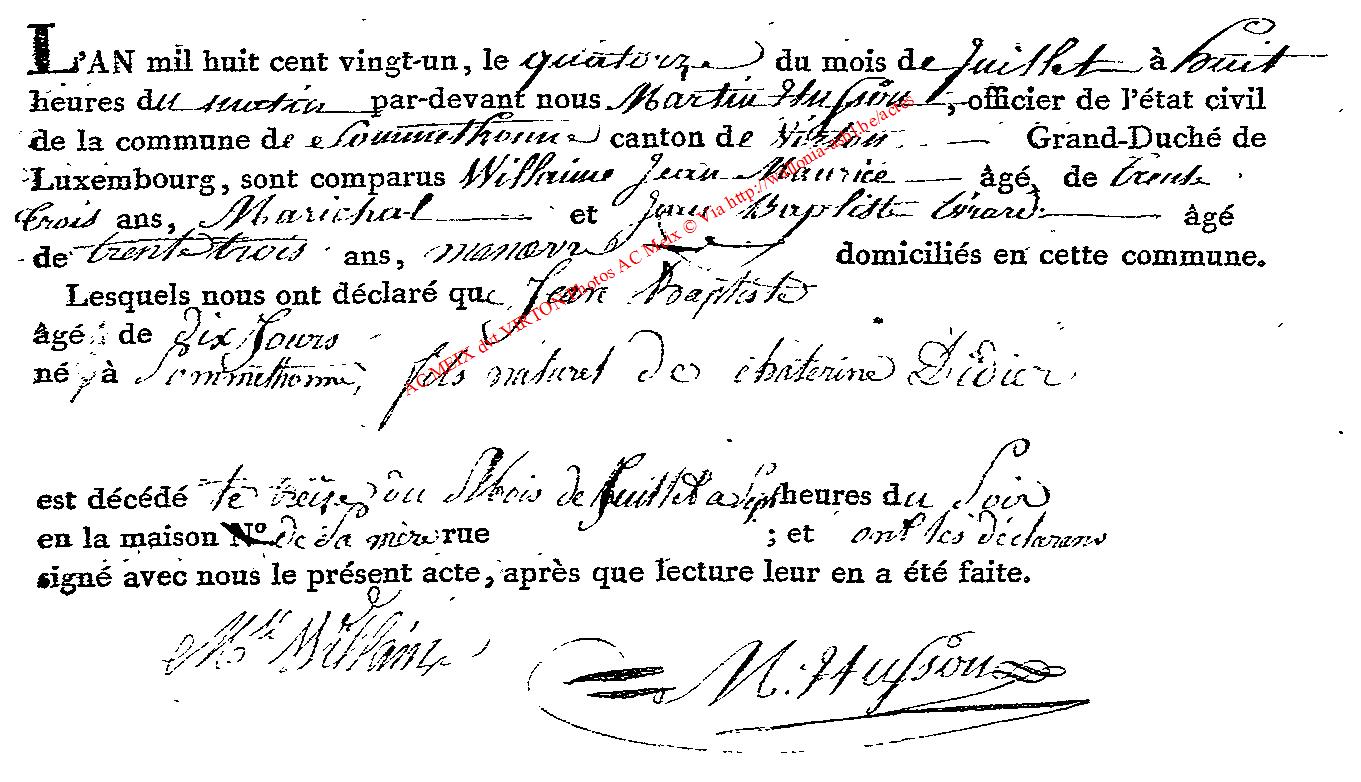 L'AN mil huit cent vingt-un, le quatorze du mois de Juillet à huit
heures du matin par-devant nous Martin Husson, officier de l'état civil
de la commune de Sommethonne canton de Virton Grand-Duché de
Luxembourg, sont comparus Willaime Jean Maurice âgé, de trente
trois ans, Marichal et Jean Baptiste Girard âgé
de trente trois ans, manovre domiciliés en cette commune.
Lesquels nous ont déclaré que Jean Baptiste
âgé de dix Jours
né à Sommethonne, fils naturel de chaterine Didier
est décédé le treize du Mois de Juillet a sept heures du Soir
en la maison N° de sa mère rue ; et ont les déclarans
signé avec nous le présent acte, après que lecture leur en a été faite.
Willaime
M. Husson
AC MEIX dvt VIRTON Photos AC Meix © Via http://wallonia-asbl.be/actes